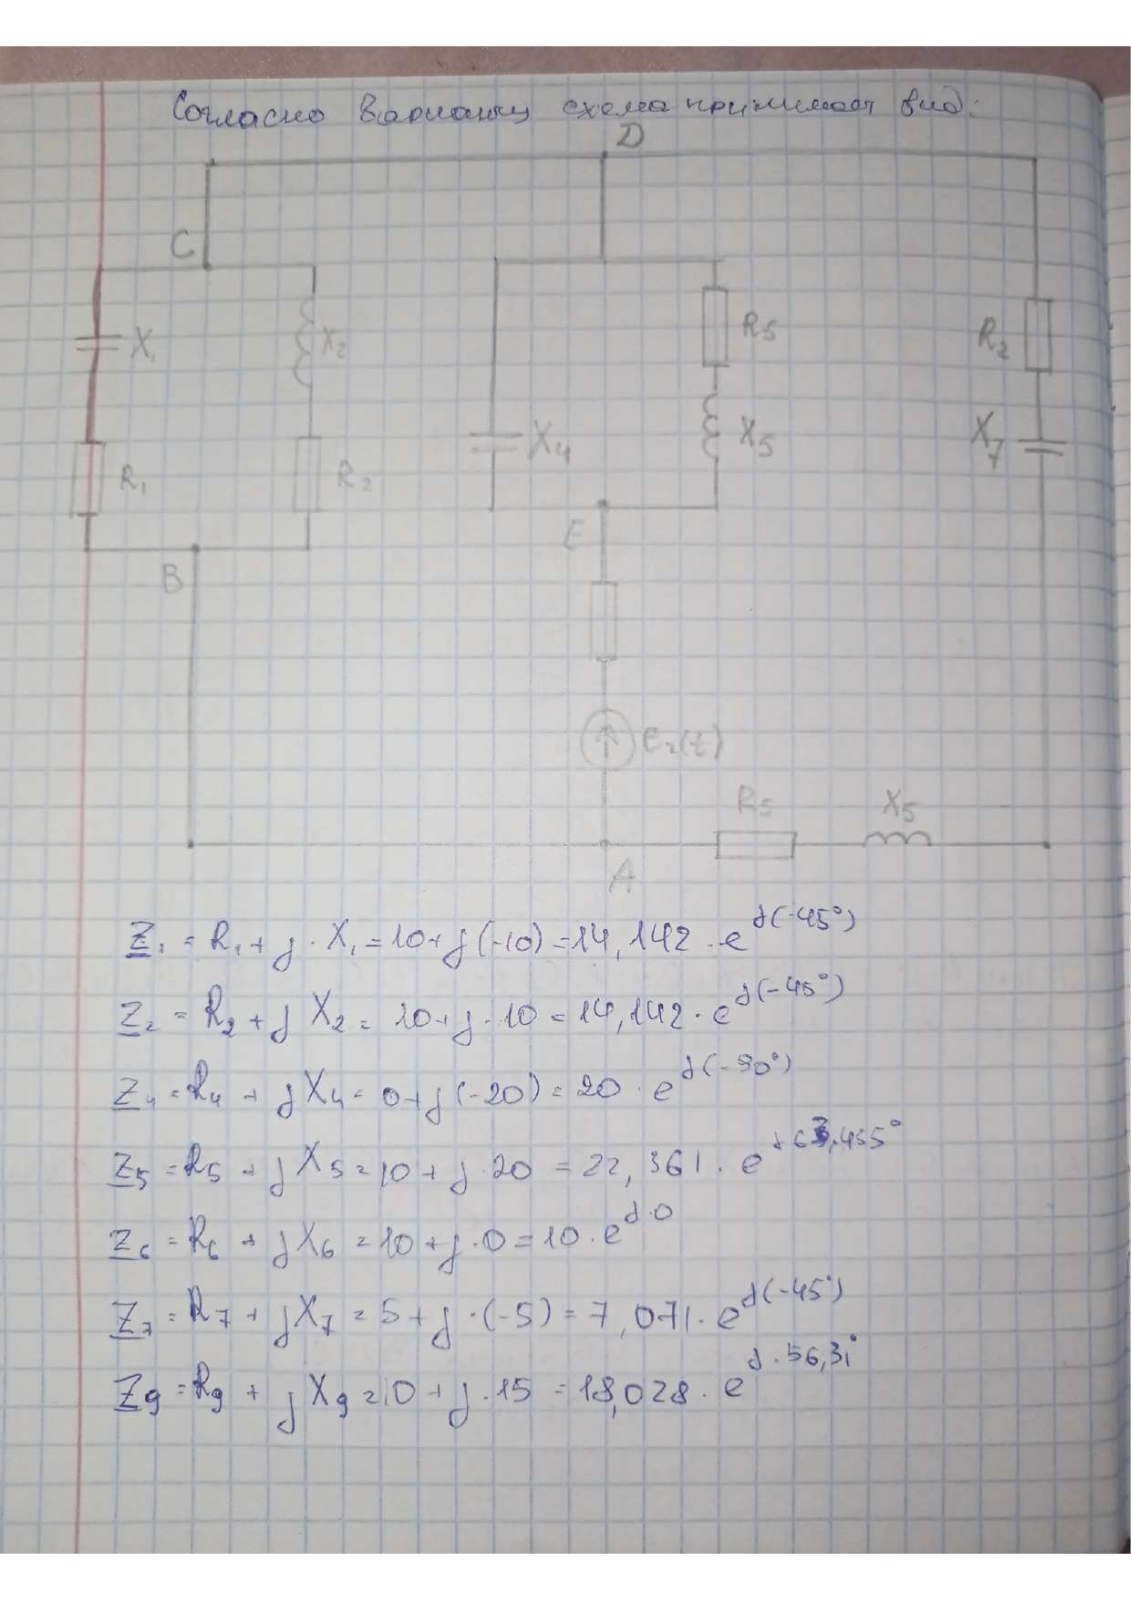 Согласно варианту схема принимает вид:
D
C
X₁
X₂
R₅
R₂
X₄
X₅
X₇
R₁
R₂
E
B
e₂(t)
R₅
X₅
A
Z₁ = R₁ + j · X₁ = 10 + j(-10) = 14,142 · e^j(-45°)
Z₂ = R₂ + j X₂ = 10 + j · 10 = 14,142 · e^j(-45°)
Z₄ = R₄ + jX₄ = 0 + j(-20) = 20 · e^j(-90°)
Z₅ = R₅ + jX₅ = 10 + j · 20 = 22,361 · e^j63,455°
Z₆ = R₆ + jX₆ = 10 + j · 0 = 10 · e^j·0
Z₇ = R₇ + jX₇ = 5 + j · (-5) = 7,071 · e^j(-45°)
Z₉ = R₉ + jX₉ = 10 + j · 15 = 18,028 · e^j·56,31°